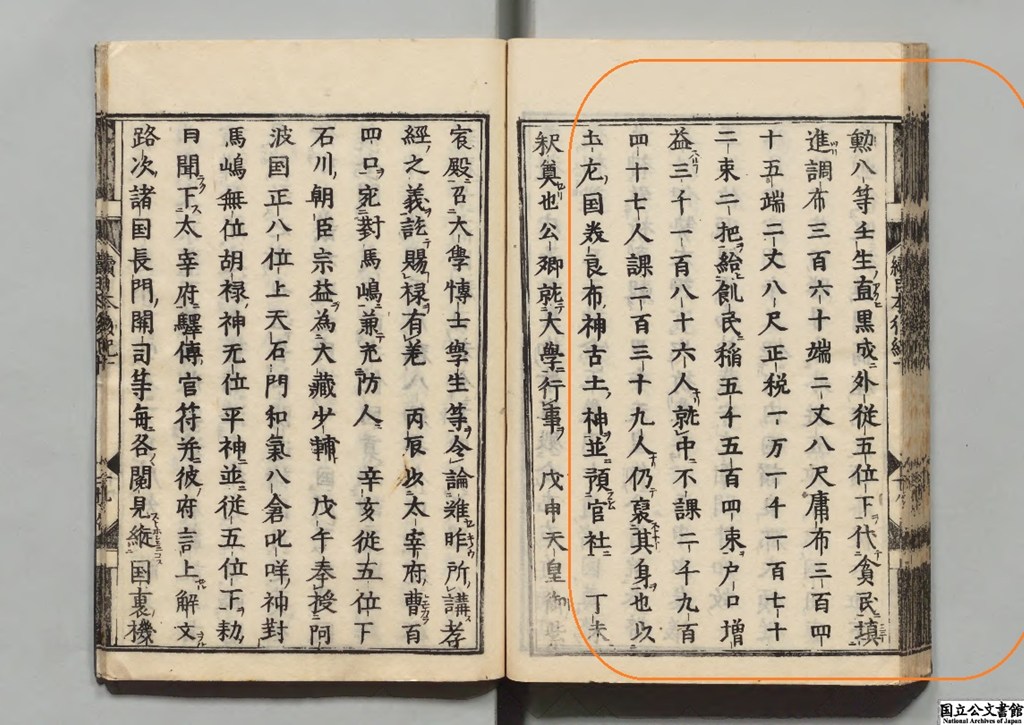 勲八等壬生直黒成外従五位下代貪民填
進調布三百六十端二丈八尺庸布三百四
十五端二丈八尺正税一万一千一百七十
二束二把給飢民稲五千五百四束户口増
益三千一百八十六人就中不課二千九百
四十七人課二百三十九人仍褒其身也以
土左国美良布神古土神並預官社 丁未
釈奠也公卿就大學行事 戊申天皇御紫
宸殿召大學博士學生等令論難昨所講孝
經之義訖賜禄有差 丙辰以太宰府曹百
四口宛對馬嶋兼充防人 辛亥従五位下
石川朝臣宗益為大藏少輔 戊午奉授阿
波国正八位上天石門和氣八倉比咩神對
馬嶋無位胡禄神无位平神並従五位下勅
曰聞下太宰府驛傳官符并彼府言上解文
路次諸国長門關司等毎各閲見縦国裏機
国立公文書館
National Archives of Japan